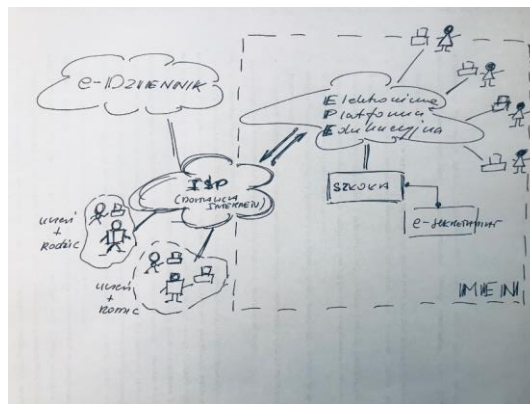 e-DZIENNIK
Elektroniczna
Platforma
Edukacyjna
ISP
(DOSTAWCA
INTERNETU)
SZKOŁA
e-SEKRETARIAT
uczeń
+
Rodzic
uczeń
+
Rodzic
MEN